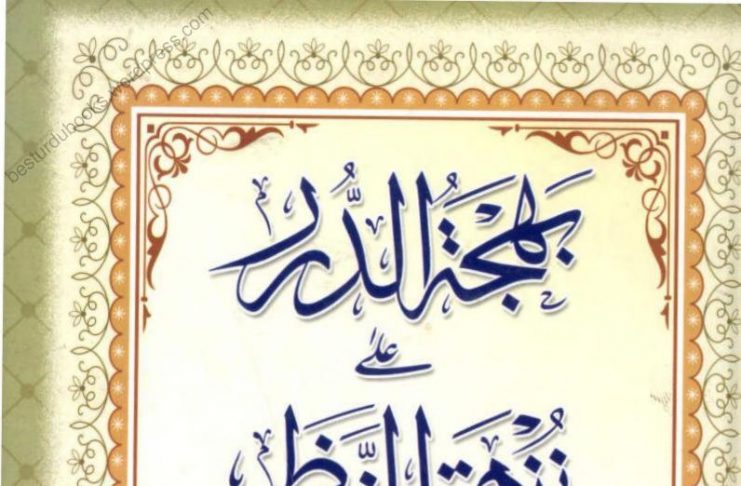 besturdubooks.wordpress.com
بهجة الدُّرر
علىٰ
نُزهة النَّظر